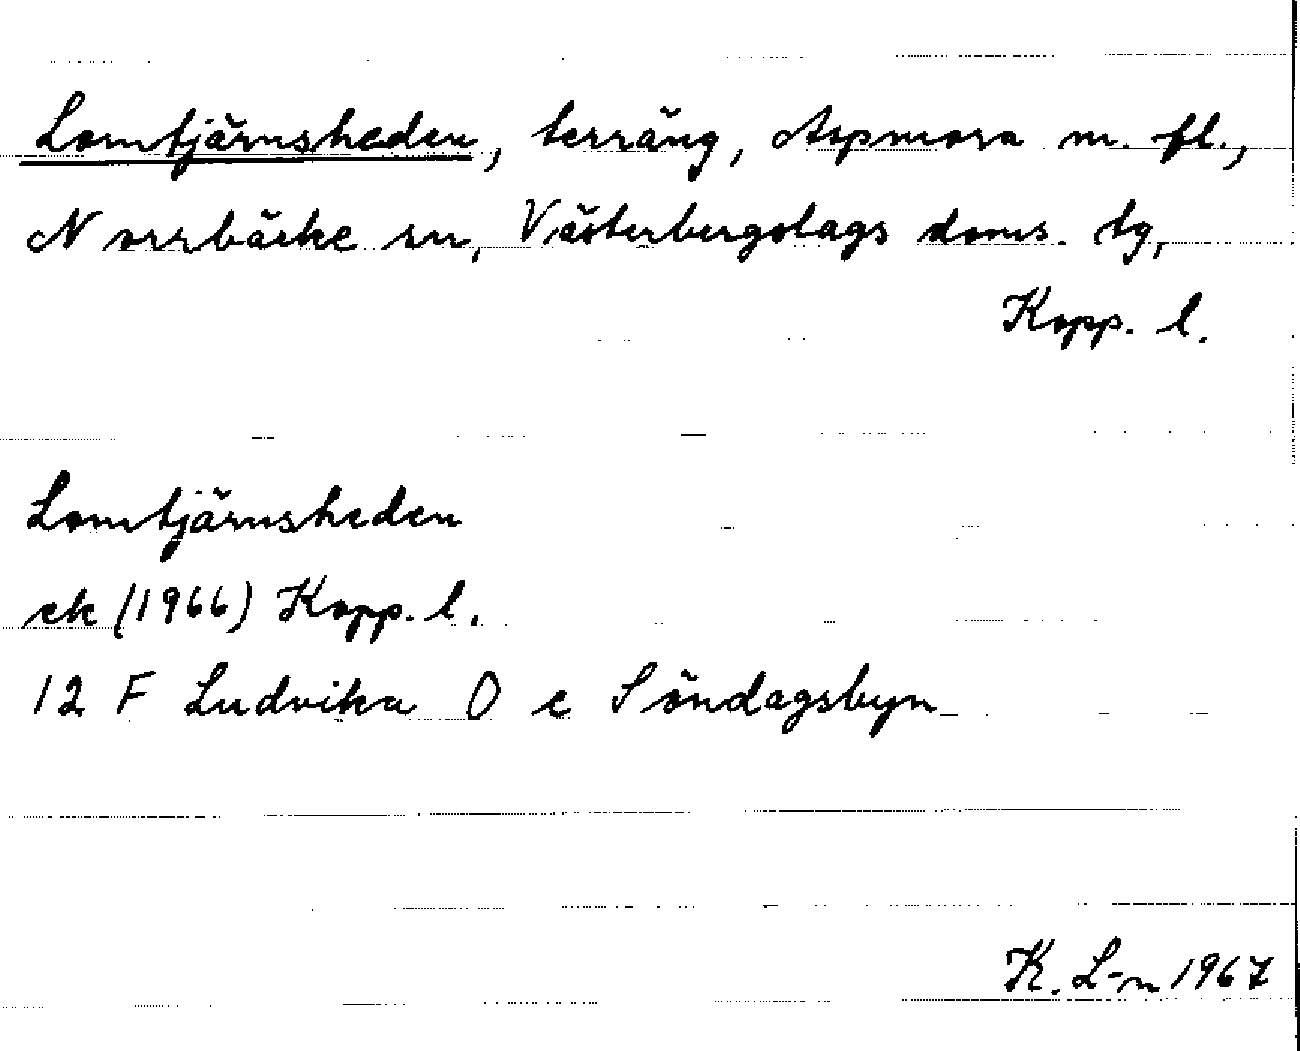 Lomtjärnsheden, terräng, Aspmora m. fl.,
Norrbärke sn, Västerbergslags doms. tg,
Kopp. l.
Lomtjärnsheden
ek (1966) Kopp. l.
12 F Ludvika O e Söndagsbyn
K. L-n 1967